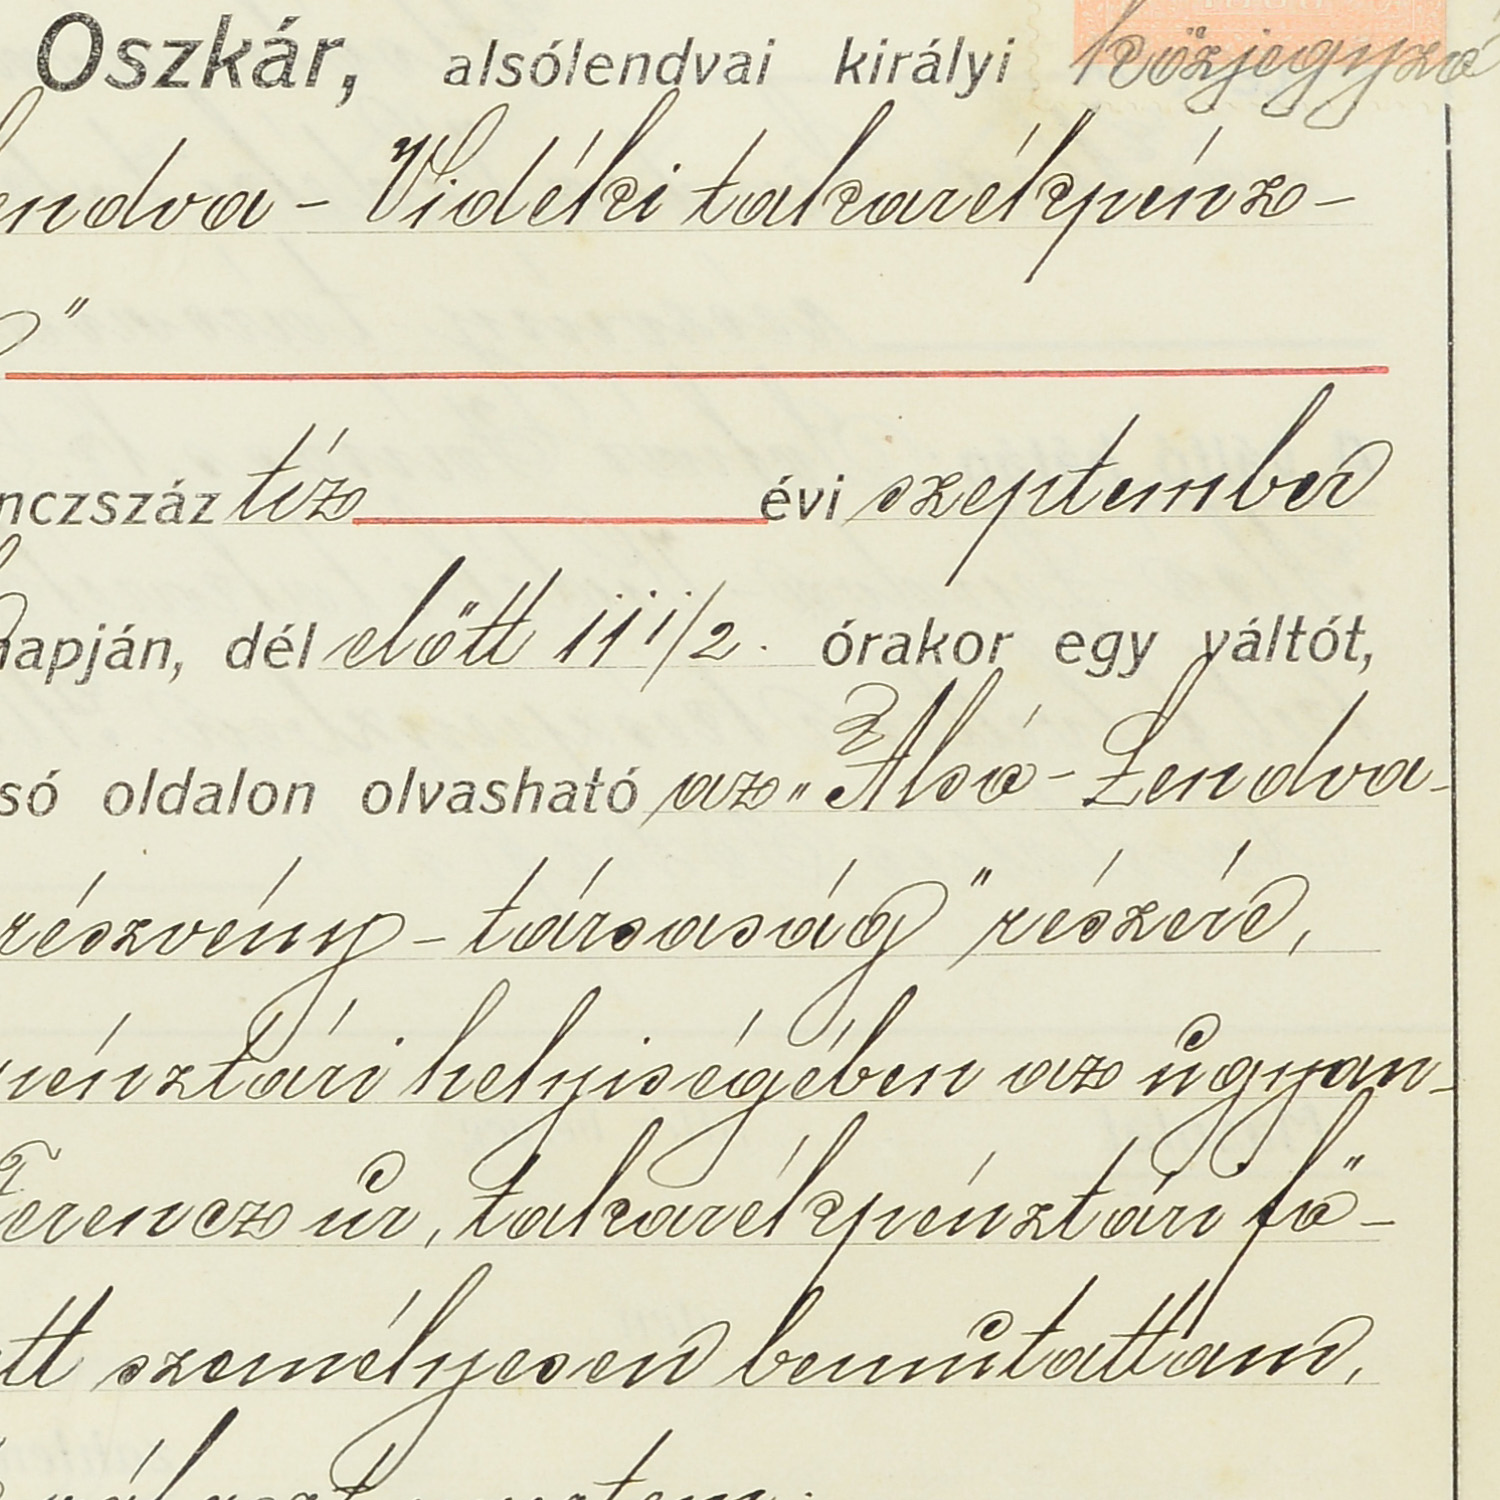 Oszkár, alsólendvai királyi közjegyző
endva - Vidéki takarékpénz-
"
nczszáz tíz évi szeptember
napján, dél előtt 11 1/2. órakor egy váltót,
só oldalon olvasható az "Alsó-Lendva-
részvény-társaság" részére,
pénztári helyiségében az ugyan-
Ferencz úr, takarékpénztári fő-
tt személyesen bemutattam,